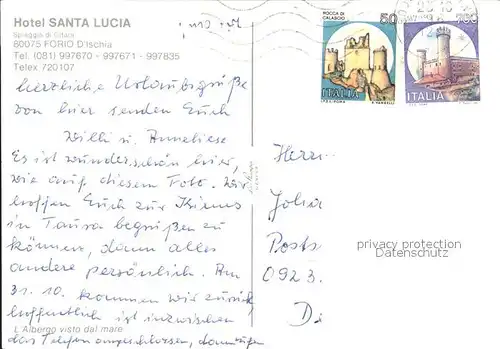 Hotel SANTA LUCIA
Spiaggia di Citara
80075 FORIO D'Ischia
Tel. (081) 997670 - 997671 - 997835
Telex 720107
herzliche Urlaubsgrüße
von hier senden Euch
Willi u. Anneliese
Es ist wunderschön hier,
wie auf diesem Foto. Wir
hoffen Euch zur Kirmes
in Taura begrüßen zu
können, dann alles
andere persönlich. Am
31. 10. kommen wir zurück,
hoffentlich ist inzwischen
das Telefon angeschlossen, dann
L'Albergo visto dal mare
ROCCA DI
CALASCIO
50
ITALIA
ITALIA
Herrn
Post
0923
privacy protection
Datenschutz